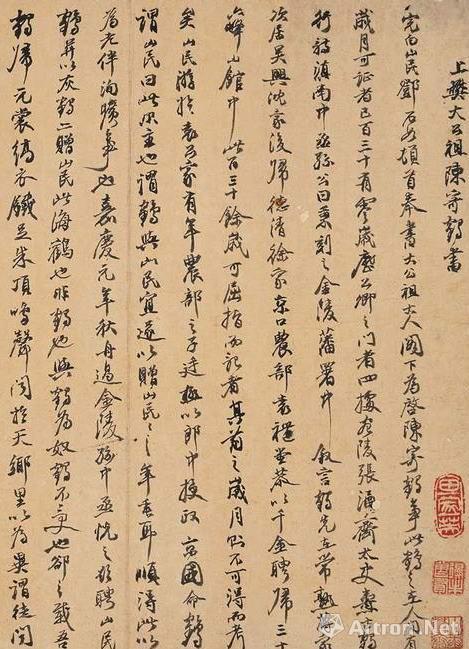 上樊大公祖陳寄鶴書
完白山民鄧石如頓首奉書大公祖大人閣下為啓陳寄鶴事此鶴之在人間有
歲月可證者已百三十有零歲歷公卿之門者四據毘陵張濟齋太史壽鶴
行稿滇南中丞孫公曰秉刻之金陵藩署中叙言鶴先在常熟
次居吳興沈家後歸德清徐家京口農部袁禮堂恭以千金聘歸三十
山館中此百三十餘歲可屈指而記者其前之歲月則不可得而考
矣山民游於袁公家有年農部之子廷極以郎中授政京國命鶴
謂山民曰此爾主也謂鶴與山民宜遂以贈山民山民之年耳順得此以
為老伴洵曠事也嘉慶元年秋舟過金陵孫中丞悅之欲聘山民
鶴并以灰鶴二贈山民此海鶴也非鶴也與鶴為奴鶴不受也卻之載吾
鶴歸元裳縞衣鐵足朱頂鳴聲聞於天鄉里以為異謂徒聞
Artron.Net